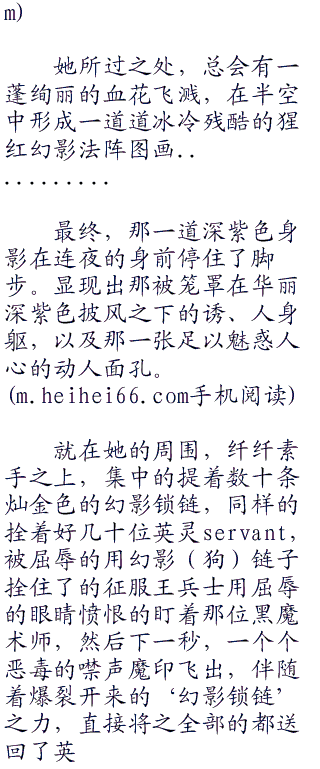 m)
她所过之处，总会有一
蓬绚丽的血花飞溅，在半空
中形成一道道冰冷残酷的猩
红幻影法阵图画..
.........
最终，那一道深紫色身
影在连夜的身前停住了脚
步。显现出那被笼罩在华丽
深紫色披风之下的诱、人身
躯，以及那一张足以魅惑人
心的动人面孔。
(m.heihei66.com手机阅读)
就在她的周围，纤纤素
手之上，集中的提着数十条
灿金色的幻影锁链，同样的
拴着好几十位英灵servant，
被屈辱的用幻影（狗）链子
拴住了的征服王兵士用屈辱
的眼睛愤恨的盯着那位黑魔
术师，然后下一秒，一个个
恶毒的噤声魔印飞出，伴随
着爆裂开来的‘幻影锁链’
之力，直接将之全部的都送
回了英